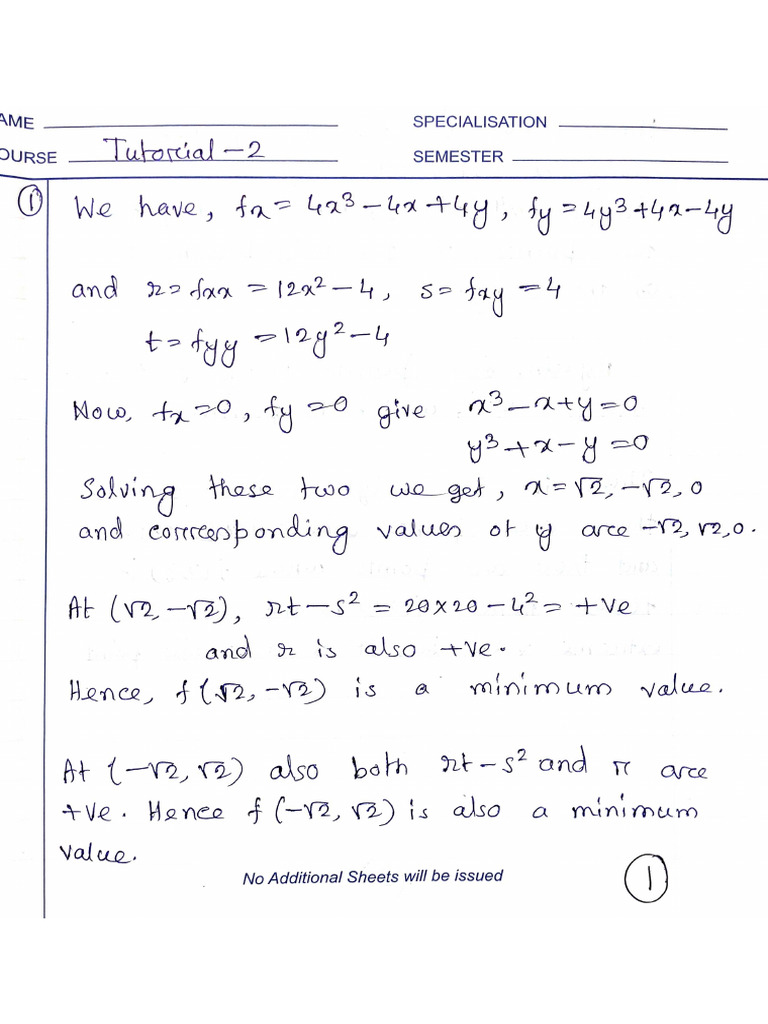 AME SPECIALISATION
OURSE Tutorial-2 SEMESTER
① We have, fx = 4x³ - 4x + 4y, fy = 4y³ + 4x - 4y
and r = fxx = 12x² - 4, s = fxy = 4
t = fyy = 12y² - 4
Now, fx = 0, fy = 0 give x³ - x + y = 0
y³ + x - y = 0
Solving these two we get, x = √2, -√2, 0
and corresponding values of y are -√2, √2, 0.
At (√2, -√2), rt - s² = 20 × 20 - 4² = +ve
and r is also +ve.
Hence, f(√2, -√2) is a minimum value.
At (-√2, √2) also both rt - s² and r are
+ve. Hence f(-√2, √2) is also a minimum
value.
No Additional Sheets will be issued
①